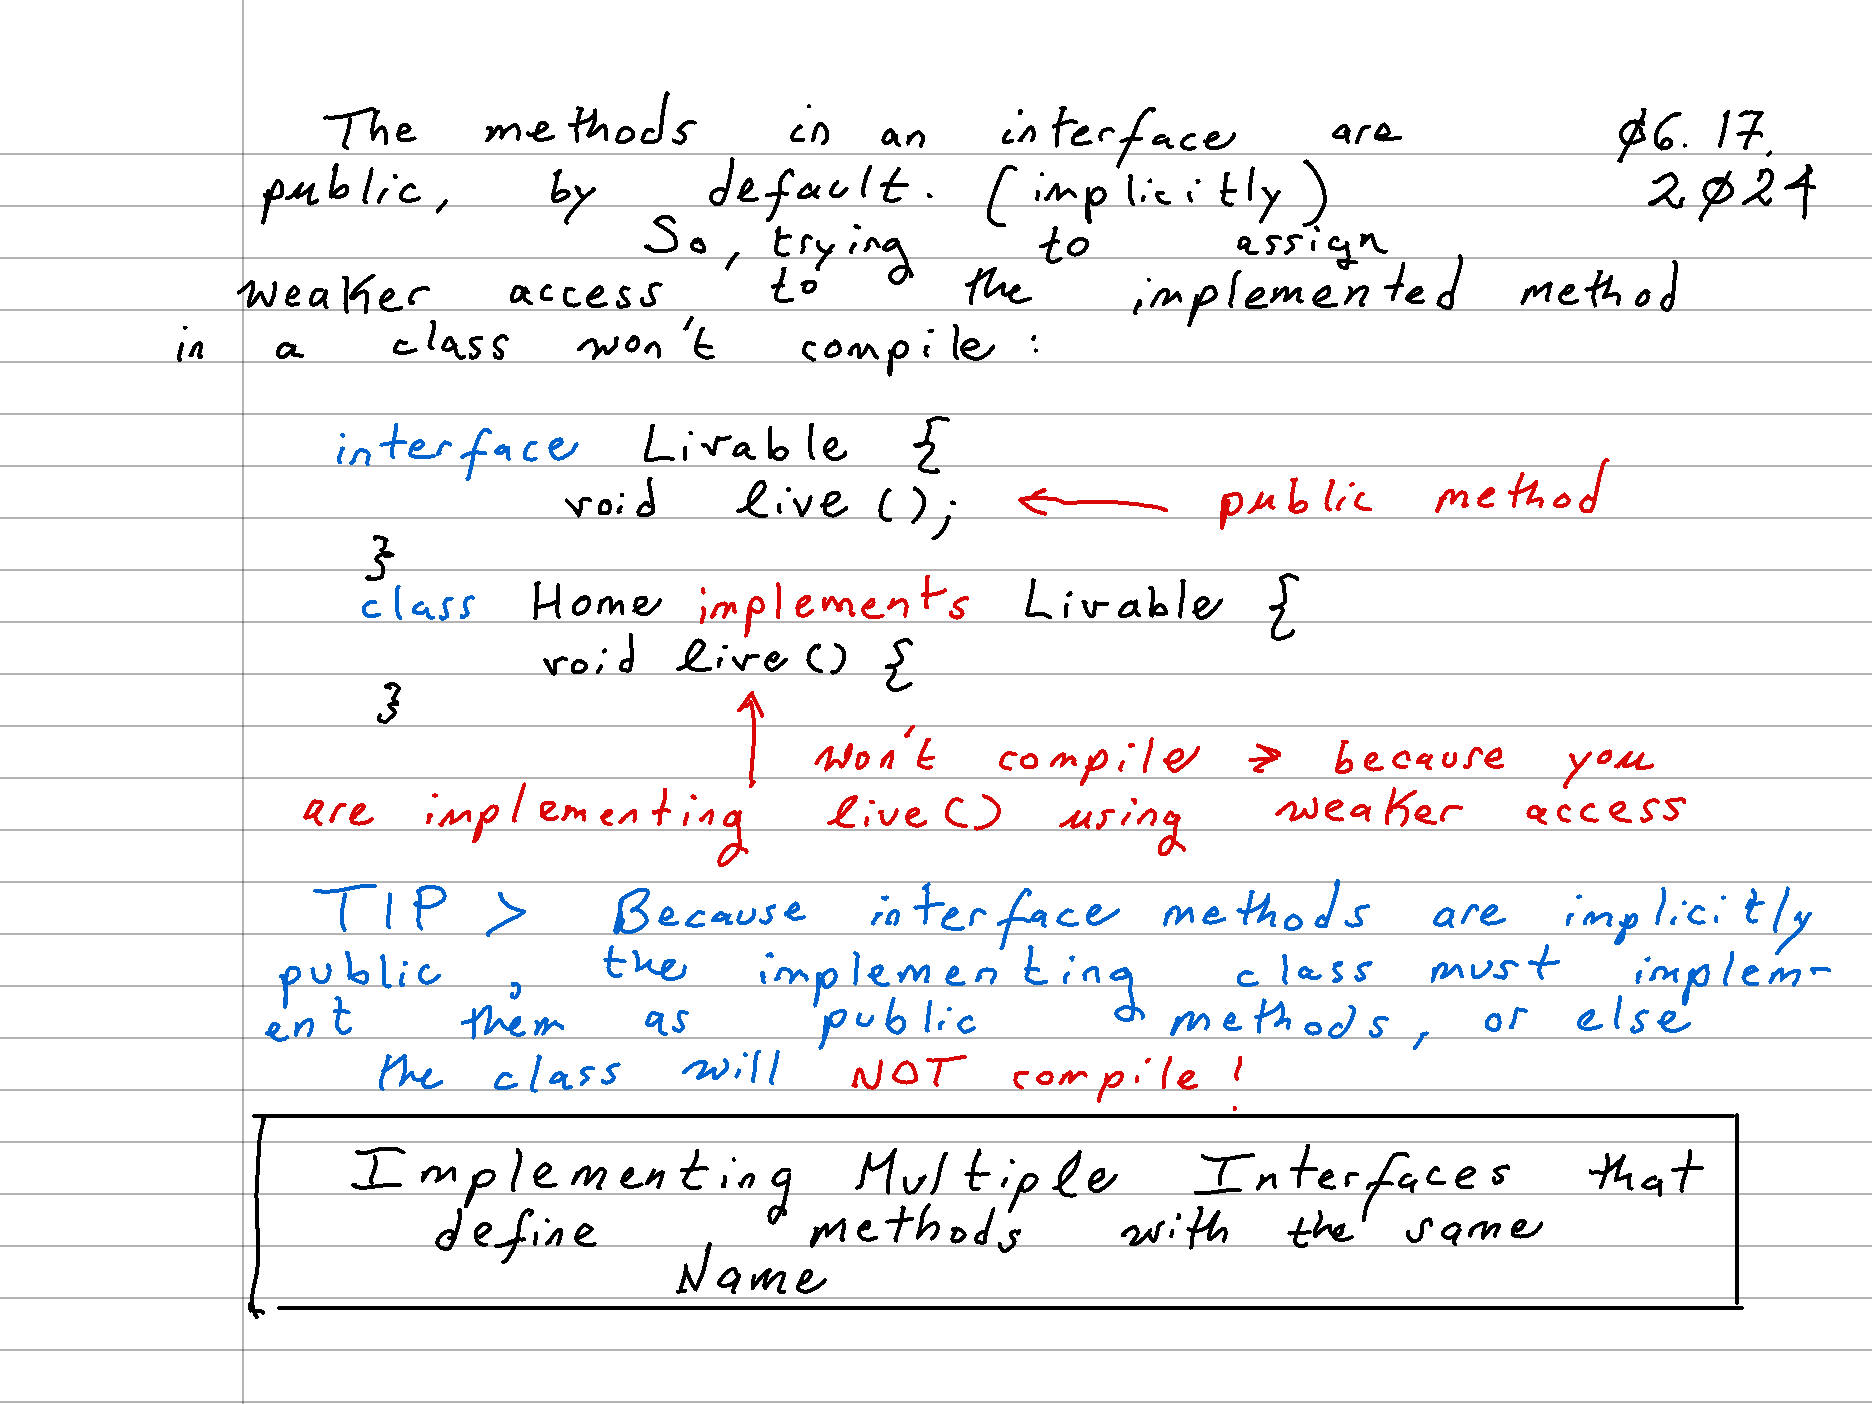 The methods in an interface are ø6.17.
public, by default. (implicitly) 2ø24
So, trying to assign
weaker access to the implemented method
in a class won't compile:
interface Livable {
void live(); ← public method
}
class Home implements Livable {
void live() {
}
won't compile → because you
are implementing live() using weaker access
TIP > Because interface methods are implicitly
public, the implementing class must implem-
ent them as public methods, or else
the class will NOT compile!
Implementing Multiple Interfaces that
define methods with the same
Name